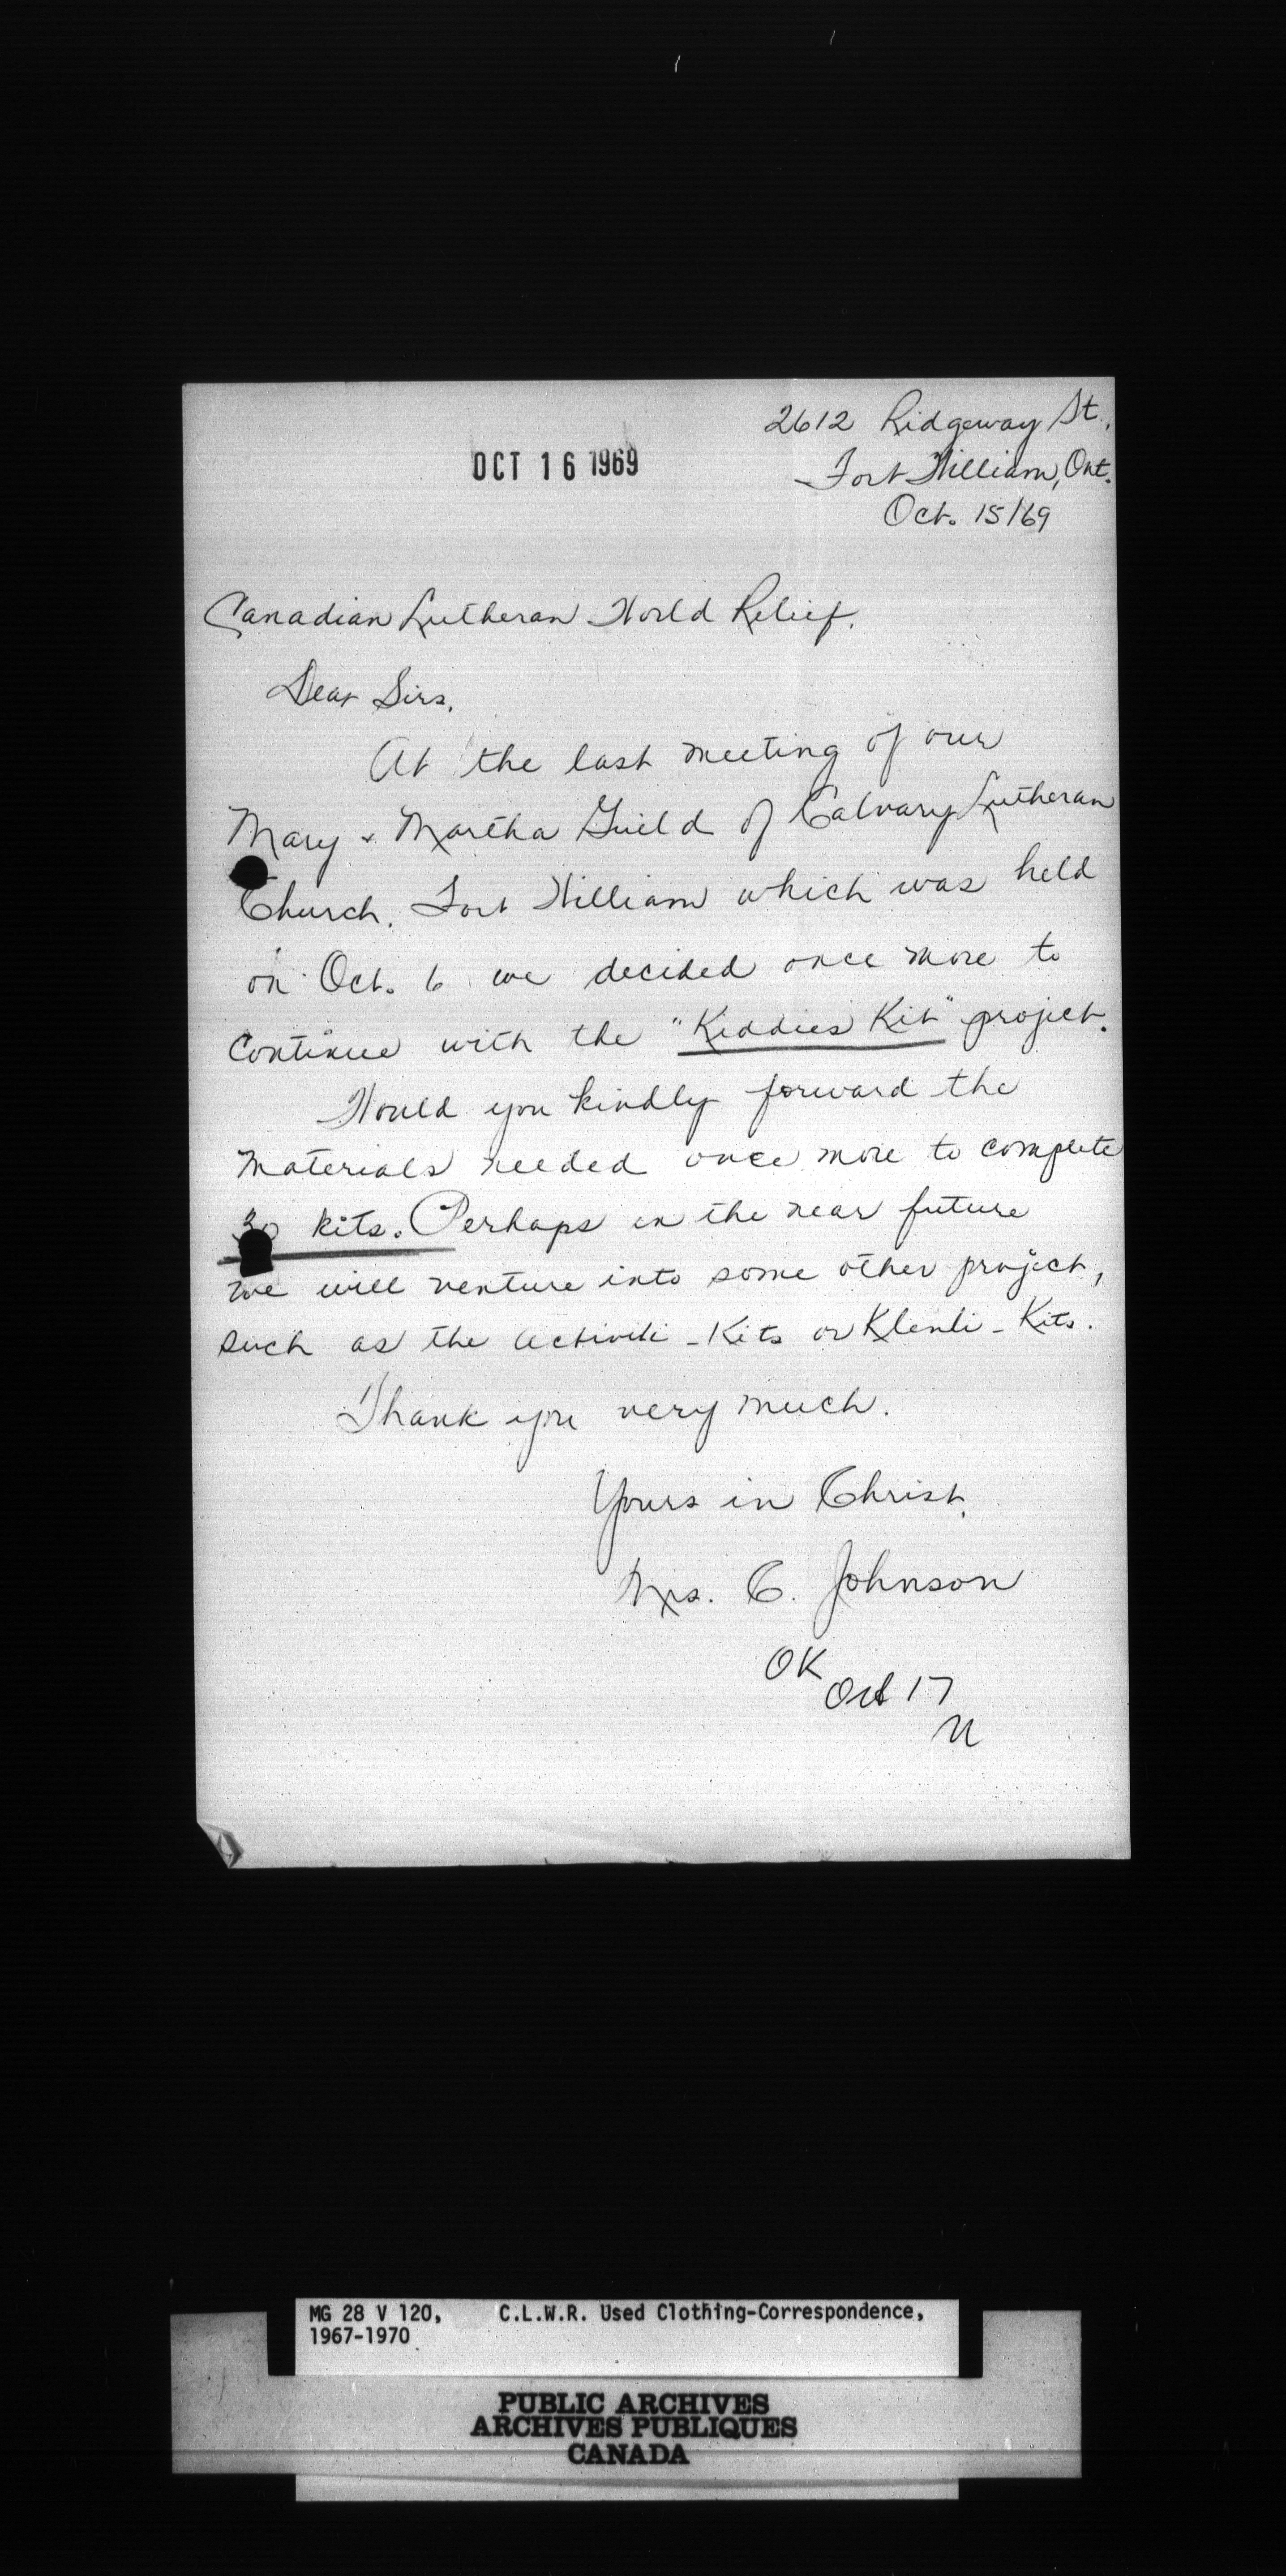 2612 Ridgeway St.,
OCT 16 1969
Fort William, Ont.
Oct. 15/69
Canadian Lutheran World Relief.
Dear Sirs,
At the last meeting of our
Mary & Martha Guild of Calvary Lutheran
Church, Fort William which was held
on Oct. 6 we decided once more to
continue with the "Kiddies Kit" project.
Would you kindly forward the
materials needed once more to complete
30 kits. Perhaps in the near future
we will venture into some other project,
such as the Activiti-Kits or Klenli-Kits.
Thank you very much.
Yours in Christ,
Mrs. C. Johnson
OK
Oct 17
MG 28 V 120, C.L.W.R. Used Clothing-Correspondence,
1967-1970
PUBLIC ARCHIVES
ARCHIVES PUBLIQUES
CANADA